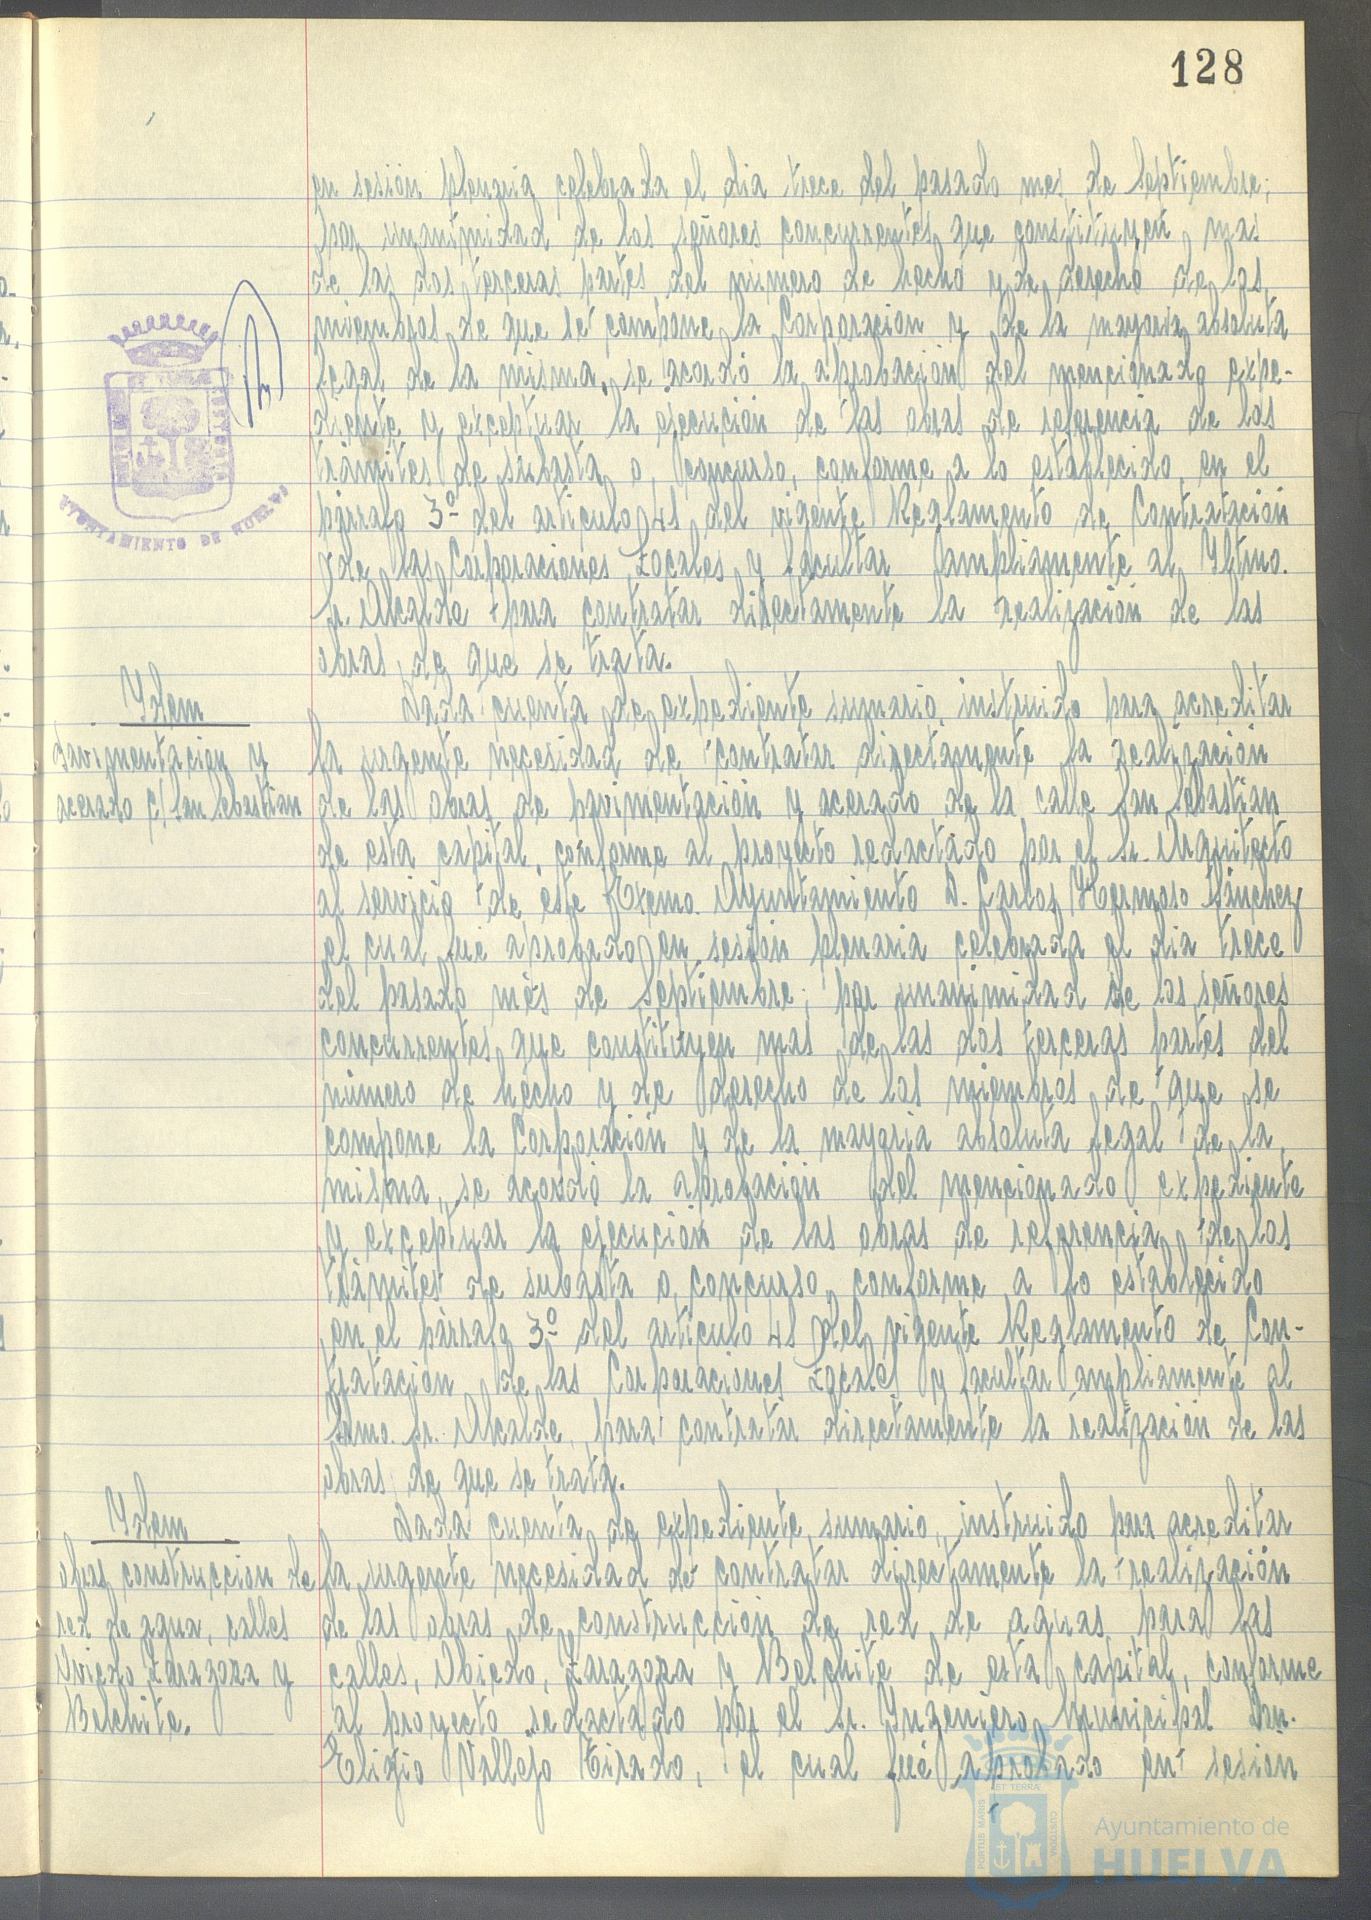 128
en sesión plenaria celebrada el dia trece del pasado mes de Septiembre;
por unanimidad de los señores concurrentes que constituyen mas
de las dos terceras partes del número de hecho y de derecho de los
miembros de que se compone la Corporación y de la mayoria absoluta
legal de la misma, se acordó la aprobación del mencionado expe-
diente y exceptuar la ejecución de las obras de referencia de los
trámites de subasta o concurso, conforme a lo establecido en el
párrafo 3º del articulo 41 del vigente Reglamento de Contratación
de las Corporaciones Locales y facultar ampliamente al Iltmo.
Sr. Alcalde para contratar directamente la realización de las
obras de que se trata.
AYUNTAMIENTO DE HUELVA
Idem
Pavimentación y
acerado c/ San Sebastian
Dada cuenta de expediente sumario, instruido para acreditar
la urgente necesidad de contratar directamente la realización
de las obras de pavimentación y acerado de la calle San Sebastian
de esta capital, conforme al proyecto redactado por el Sr. Arquitecto
al servicio de este Excmo. Ayuntamiento D. Carlos Hermoso Sánchez
el cual fué aprobado en sesión plenaria celebrada el dia trece
del pasado mes de Septiembre; por unanimidad de los señores
concurrentes que constituyen mas de las dos terceras partes del
número de hecho y de derecho de los miembros de que se
compone la Corporación y de la mayoria absoluta legal de la
misma, se acordó la aprobación del mencionado expediente
y exceptuar la ejecución de las obras de referencia de los
trámites de subasta o concurso, conforme a lo establecido
en el párrafo 3º del articulo 41 del vigente Reglamento de Con-
tratación de las Corporaciones Locales y facultar ampliamente al
Iltmo. Sr. Alcalde, para contratar directamente la realización de las
obras de que se trata.
Idem
obras construccion de
red de agua, calles
Oviedo Zaragoza y
Belchite.
Dada cuenta de expediente sumario, instruido para acreditar
la urgente necesidad de contratar directamente la realización
de las obras de construcción de red de aguas para las
calles, Obiedo, Zaragoza y Belchite de esta capital, conforme
al proyecto redactado por el Sr. Ingeniero Municipal Don.
Eligio Vallejo Tirado, el cual fué aprobado en sesión
PORTUS MARIS ET TERRAE CUSTODIA
Ayuntamiento de
HUELVA